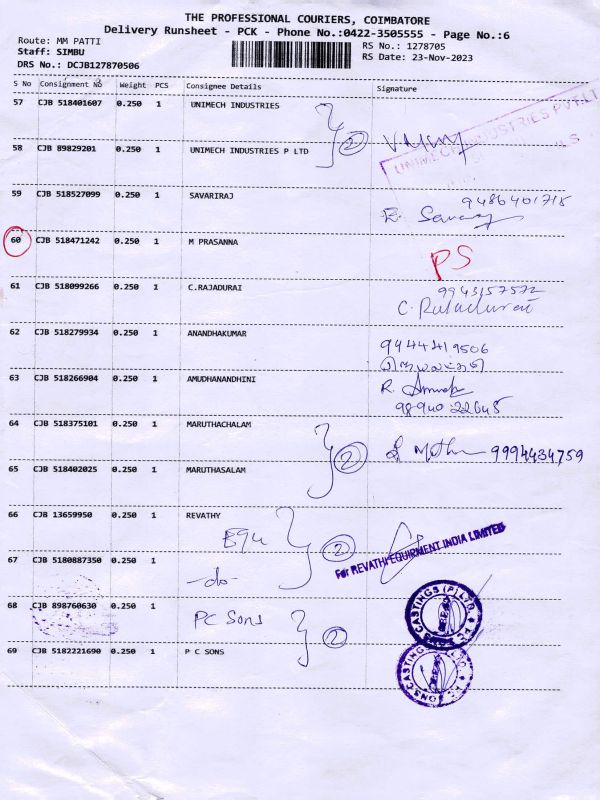 THE PROFESSIONAL COURIERS, COIMBATORE
Delivery Runsheet - PCK - Phone No.:0422-3505555 - Page No.:6
Route: MM PATTI
Staff: SIMBU
DRS No.: DCJB127870506
RS No.: 1278705
RS Date: 23-Nov-2023
S No Consignment No Weight PCS Consignee Details Signature
57 CJB 518401607 0.250 1 UNIMECH INDUSTRIES
2
UNIMECH INDUSTRIES PVT.LT
58 CJB 89829201 0.250 1 UNIMECH INDUSTRIES P LTD
59 CJB 518527099 0.250 1 SAVARIRAJ
9486401718
60 CJB 518471242 0.250 1 M PRASANNA
PS
61 CJB 518099266 0.250 1 C.RAJADURAI
9943157572
C. Rajadurai
62 CJB 518279934 0.250 1 ANANDHAKUMAR
9444419506
63 CJB 518266904 0.250 1 AMUDHANANDHINI
98940 22645
64 CJB 518375101 0.250 1 MARUTHACHALAM
2
9994434759
65 CJB 518402025 0.250 1 MARUTHASALAM
66 CJB 13659950 0.250 1 REVATHY
2
For REVATHI EQUIRMENT INDIA LIMITED
67 CJB 5180887350 0.250 1
-do-
68 CJB 898760630 0.250 1
PC Sons
2
CASTINGS (P) LTD.
69 CJB 5182221690 0.250 1 P C SONS